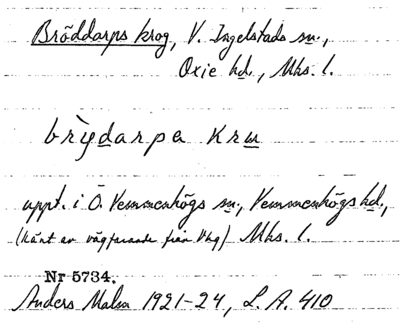 Bröddarps krog, V. Ingelstads sn.,
Oxie hd., Mhs. l.
brỳdarpa krɯ
uppt. i Ö. Vemmenhögs sn., Vemmenhögs hd.,
(känt av vägfarande från Vhg) Mhs. l.
Nr 5734.
Anders Malm 1921-24, L.A. 410